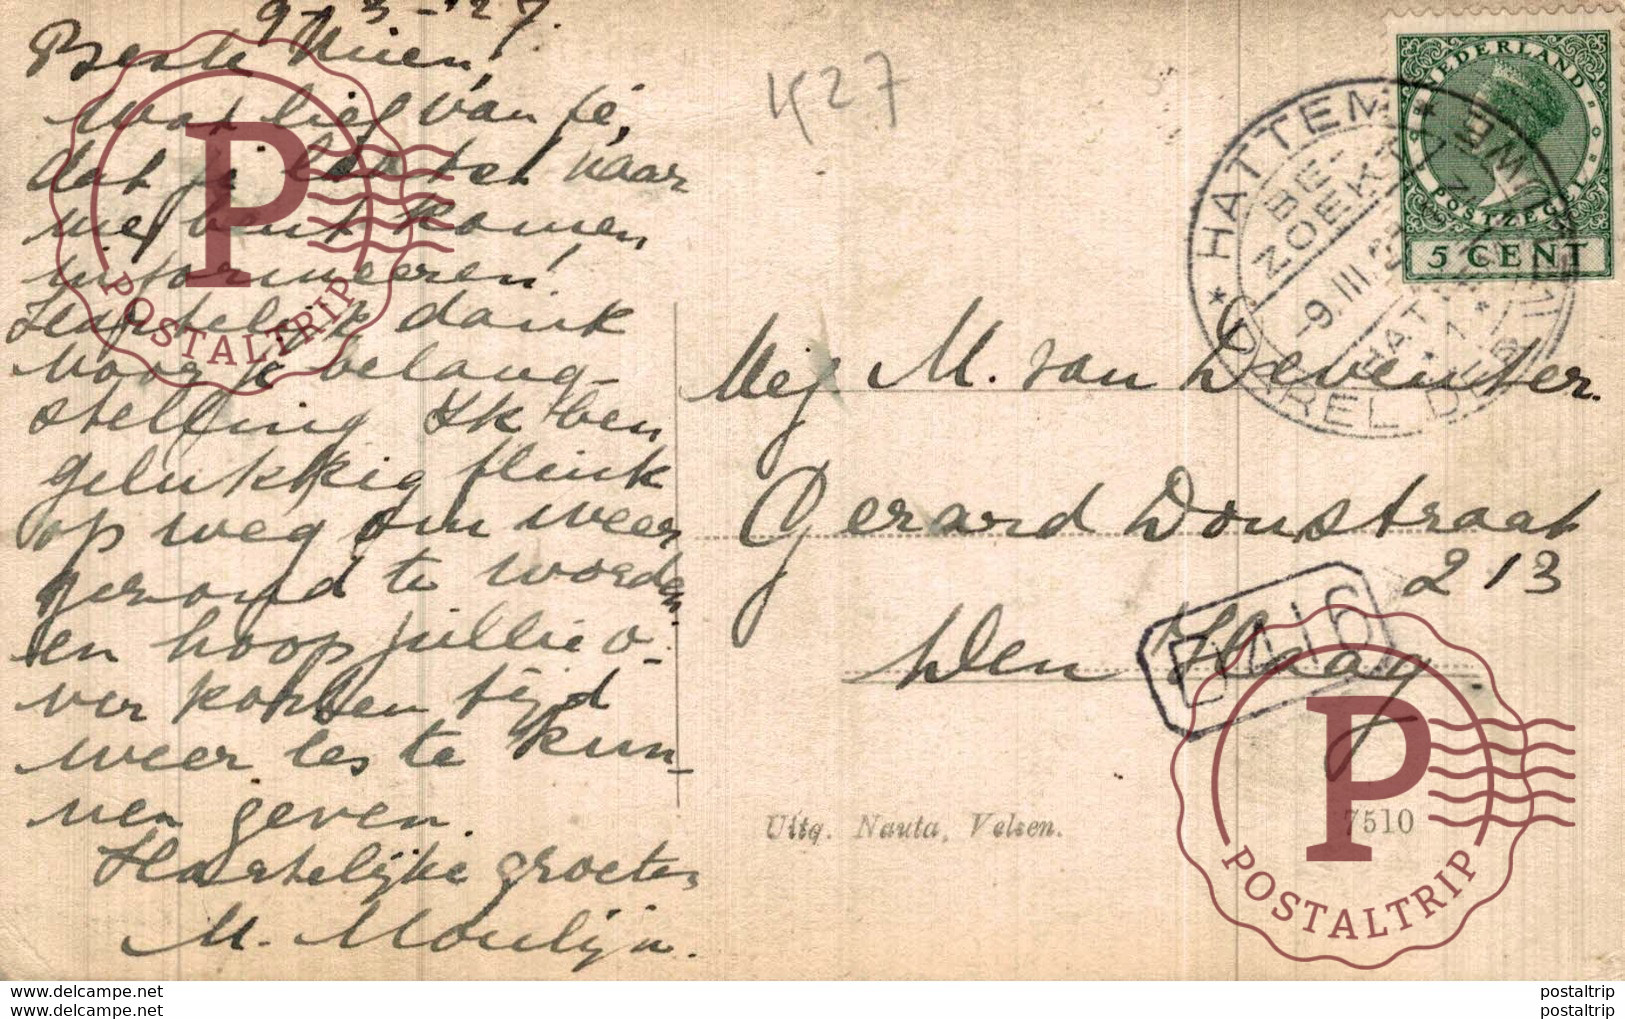 9-3-'27.
Beste Mien,
Wat lief van je,
dat je laatst naar
me bent komen
informeeren!
Hartelijk dank
voor je belang-
stelling Ik ben
gelukkig flink
op weg om weer
gezond te worden
en hoop jullie o-
ver korten tijd
weer les te kun-
nen geven.
Hartelijke groeten
M. Moulijn.
1927
NEDERLAND
POSTZEGEL
5 CENT
HATTEM
BE-
ZOEKT
-9.III
HAT
Mej M. van Deventer.
Gerard Doustraat
213
Den Haag
Uitg. Nauta, Velsen.
7510
P
POSTALTRIP
P
POSTALTRIP
www.delcampe.net
www.delcampe.net
postaltrip
postaltrip